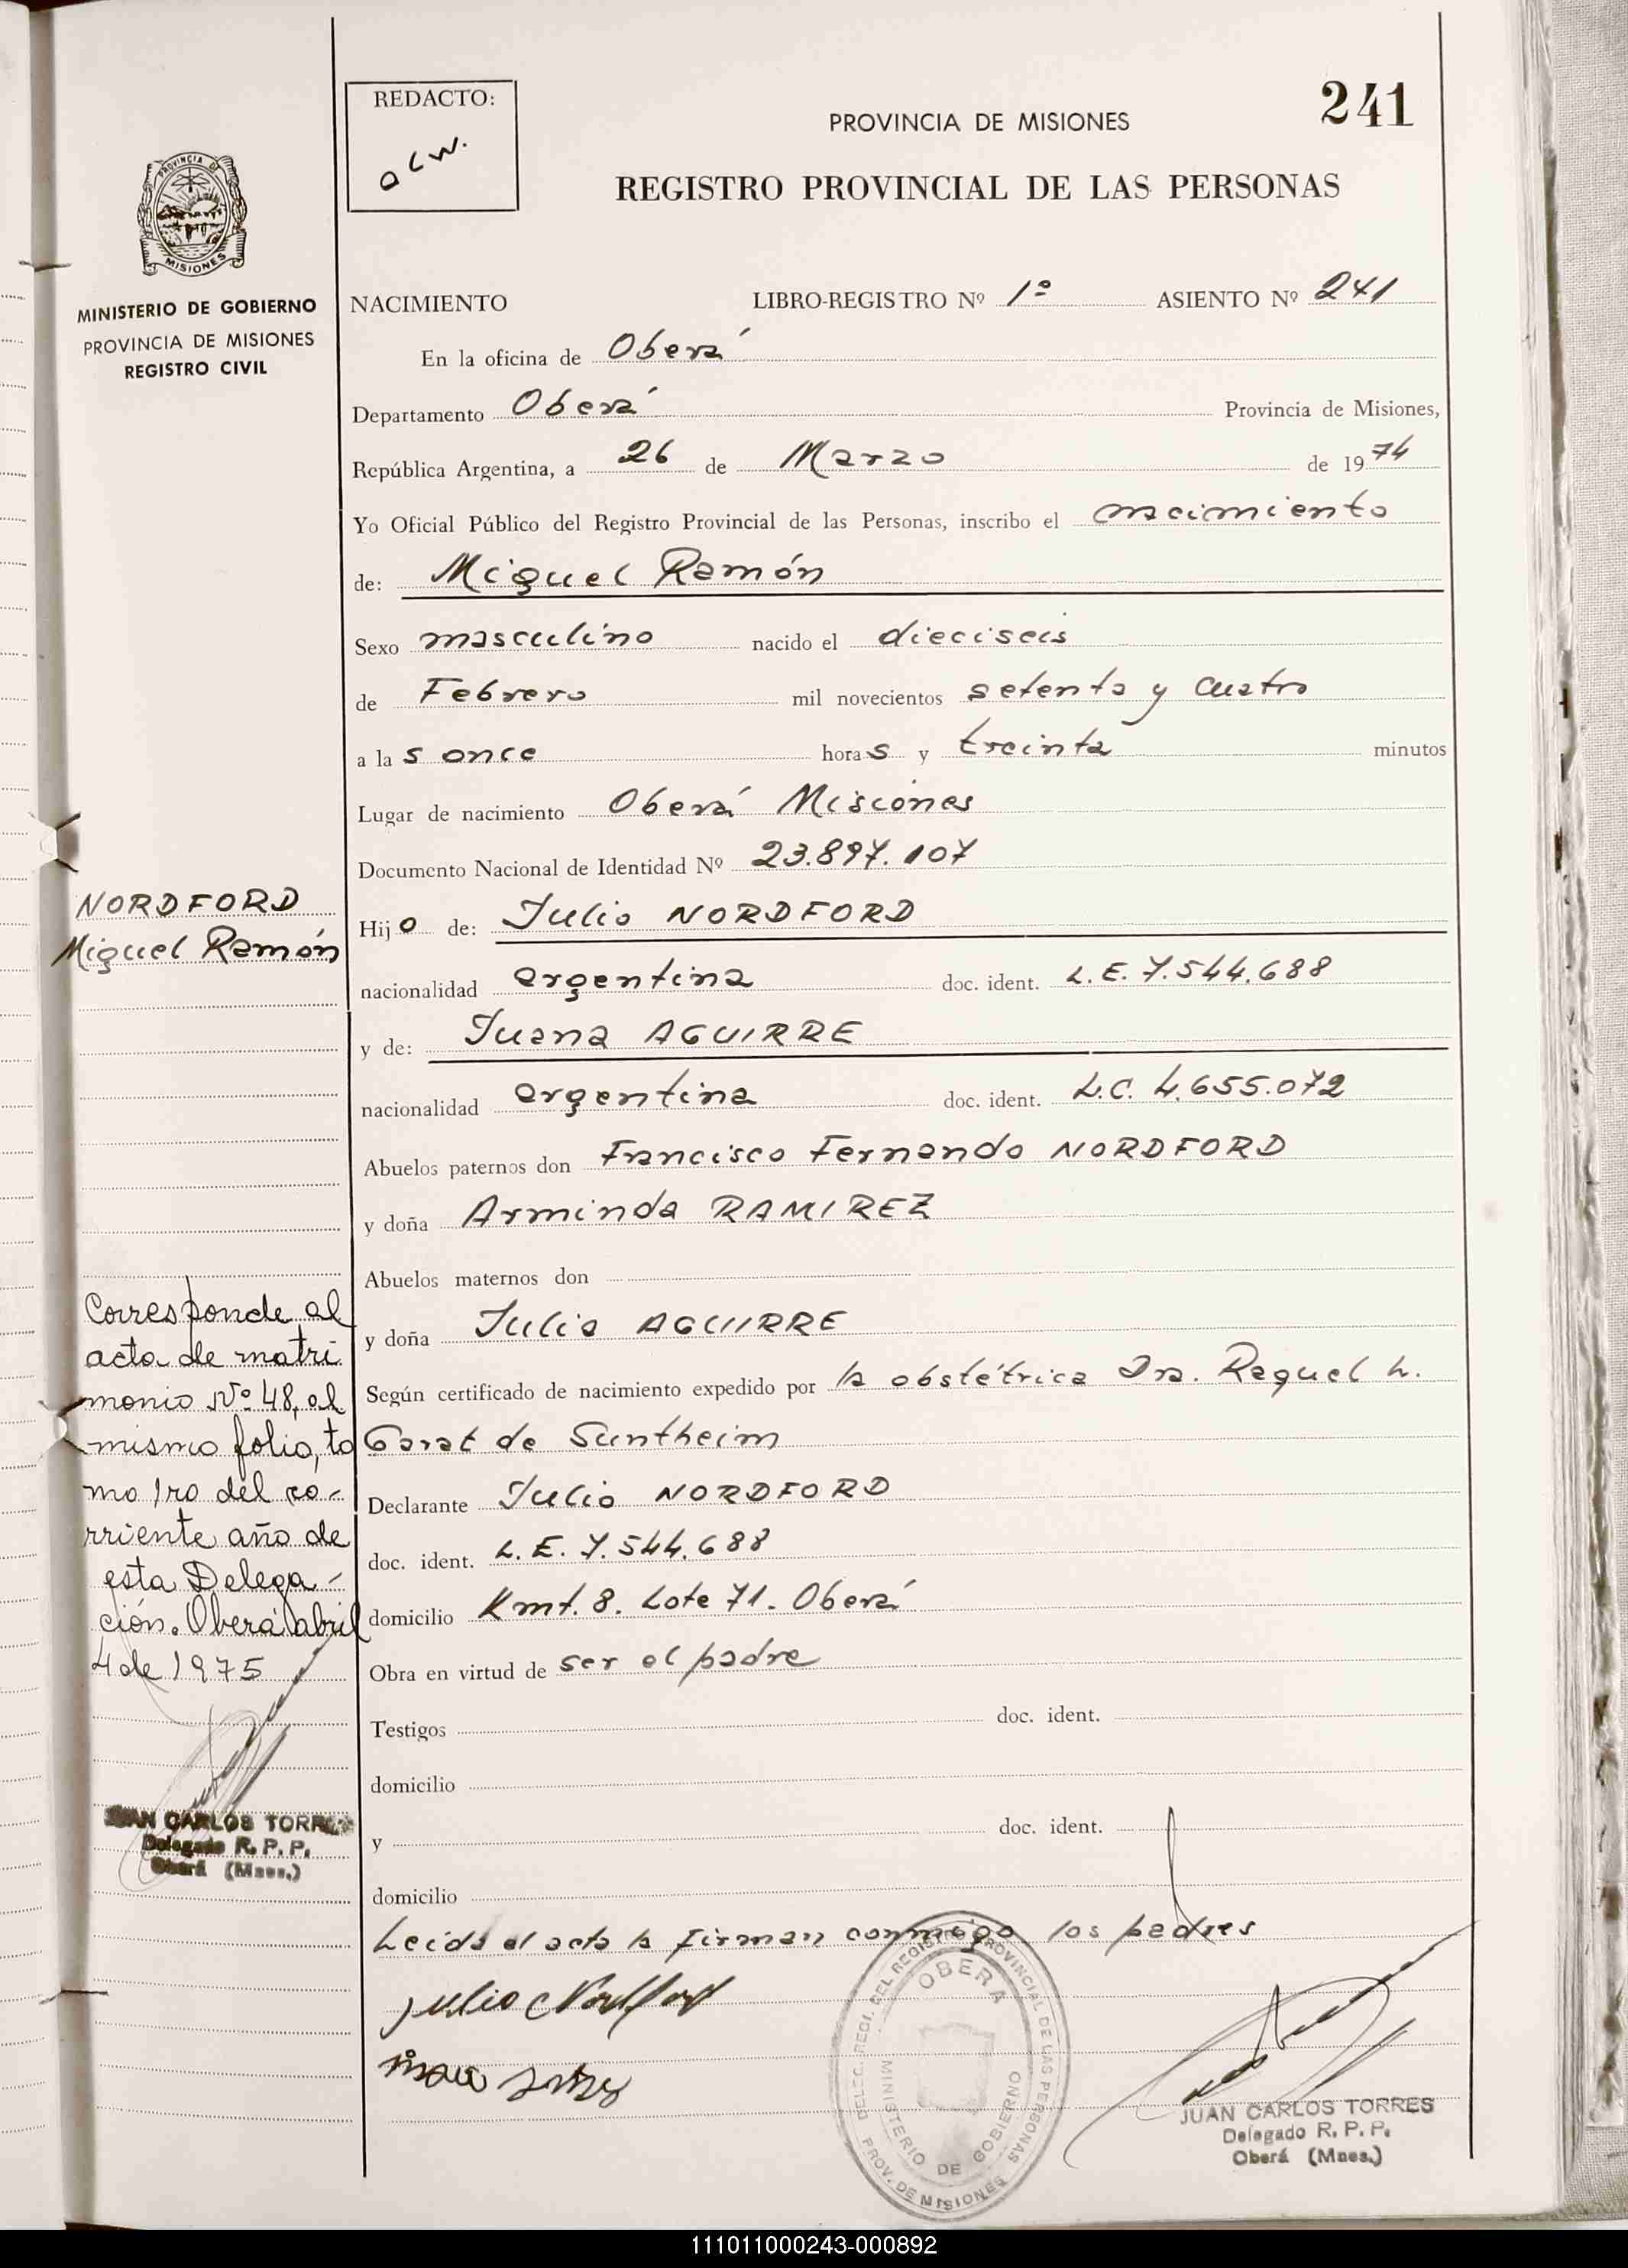 241
REDACTO:
a c w.
PROVINCIA DE MISIONES
REGISTRO PROVINCIAL DE LAS PERSONAS
PROVINCIA DE MISIONES
MINISTERIO DE GOBIERNO
PROVINCIA DE MISIONES
REGISTRO CIVIL
NACIMIENTO LIBRO-REGISTRO Nº 1º ASIENTO Nº 241
En la oficina de Oberá
Departamento Oberá Provincia de Misiones,
República Argentina, a 26 de Marzo de 1974
Yo Oficial Público del Registro Provincial de las Personas, inscribo el nacimiento
de: Miguel Ramón
Sexo masculino nacido el dieciseis
de Febrero mil novecientos setenta y cuatro
a las once horas y treinta minutos
Lugar de nacimiento Oberá Misiones
Documento Nacional de Identidad Nº 23.897.107
NORDFORD
Miguel Ramón
Hijo de: Julio NORDFORD
nacionalidad argentina doc. ident. L.E. 7.544.688
y de: Juana AGUIRRE
nacionalidad argentina doc. ident. L.C. 4.655.072
Abuelos paternos don Francisco Fernando NORDFORD
y doña Arminda RAMIREZ
Abuelos maternos don
y doña Julia AGUIRRE
Según certificado de nacimiento expedido por la obstétrica Dra. Raquel L.
Garat de Suntheim
Declarante Julio NORDFORD
doc. ident. L.E. 7.544.688
domicilio Kmt. 8. Lote 71. Oberá
Obra en virtud de ser el padre
Testigos doc. ident.
domicilio
y doc. ident.
domicilio
Leída el acta la firman conmigo los padres
Corresponde al
acta de matri
monio Nº 48, al
mismo folio, to
mo 1ro del co-
rriente año de
esta Delega-
ción. Oberá abril
4 de 1975
JUAN CARLOS TORRES
Delegado R. P. P.
Oberá (Mnes.)
Julio Nordford
DELEC. REGI. DEL REGISTRO PROVINCIAL DE LAS PERSONAS
OBERA
MINISTERIO DE GOBIERNO
PROV. DE MISIONES
JUAN CARLOS TORRES
Delegado R. P. P.
Oberá (Mnes.)
111011000243-000892